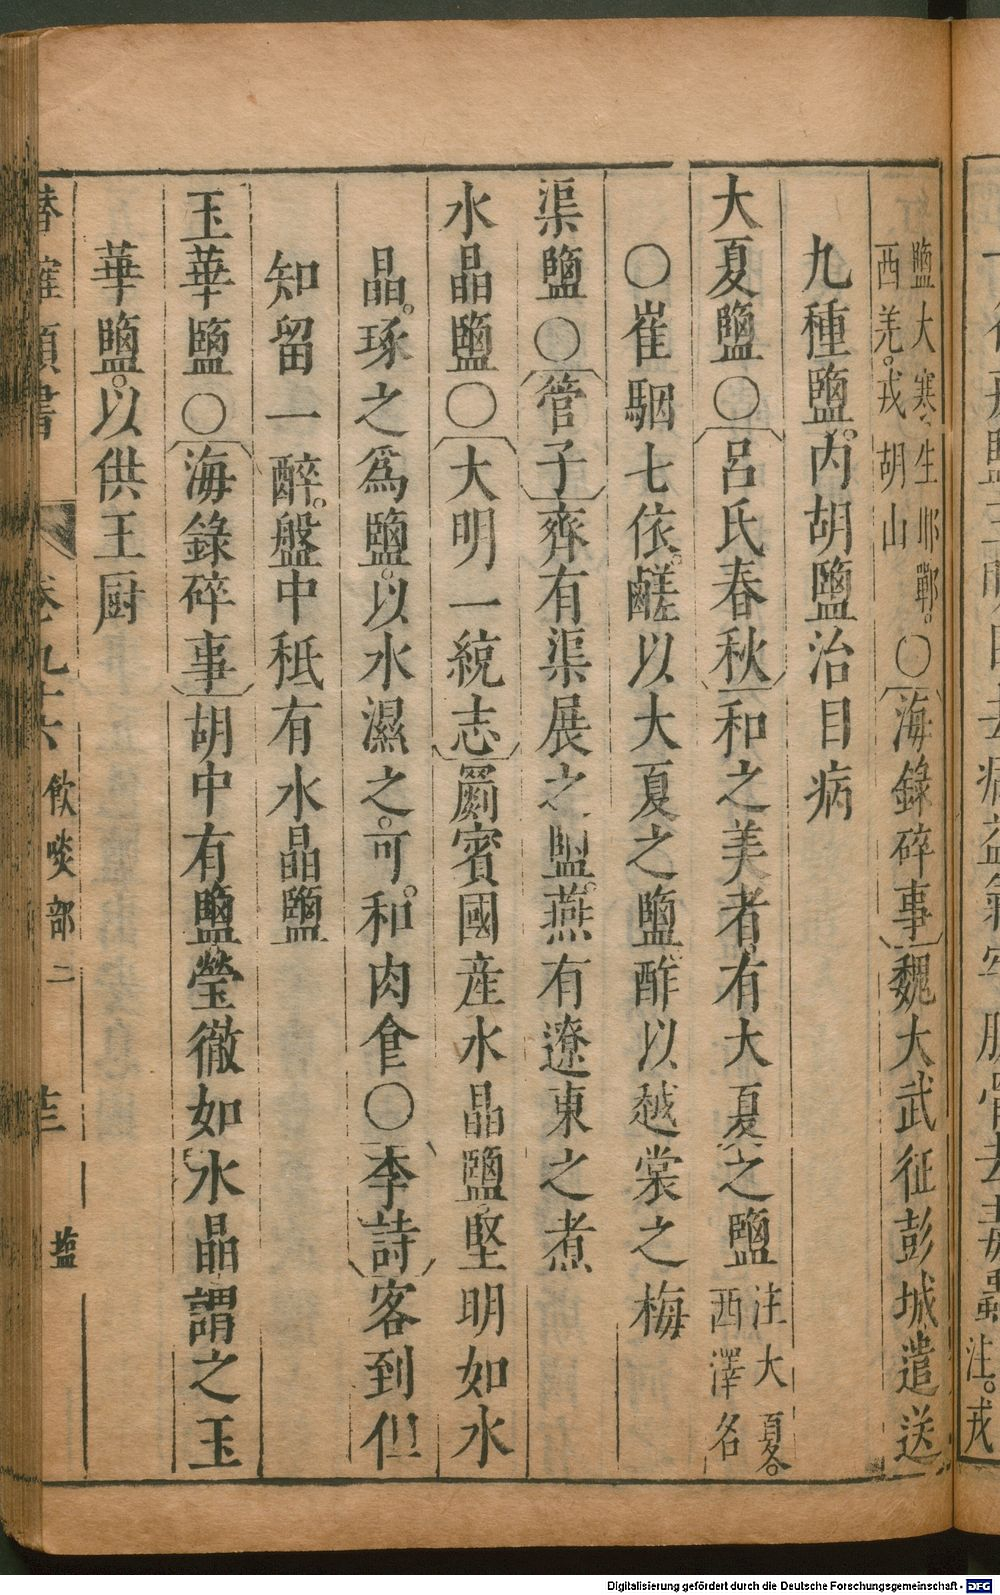 鹽大寒生邯鄲。
西羌。戎胡山
○海錄碎事魏大武征彭城遣送
九種鹽。内胡鹽治目病
大夏鹽○呂氏春秋和之美者。有大夏之鹽
注大夏。
西澤名
○崔駰七依。鹺以大夏之鹽。酢以越棠之梅
渠鹽○管子齊有渠展之鹽。燕有遼東之煮
水晶鹽○大明一統志罽賓國産水晶鹽。堅明如水
晶。琢之爲鹽。以水濕之。可。和肉食○李詩客到但
知留一醉。盤中秪有水晶鹽
玉華鹽○海錄碎事胡中有鹽瑩徹如水晶謂之玉
華鹽。以供王厨
類書
卷九十六
飲啖部二
盐
注。戎
Digitalisierung gefördert durch die Deutsche Forschungsgemeinschaft - DFG